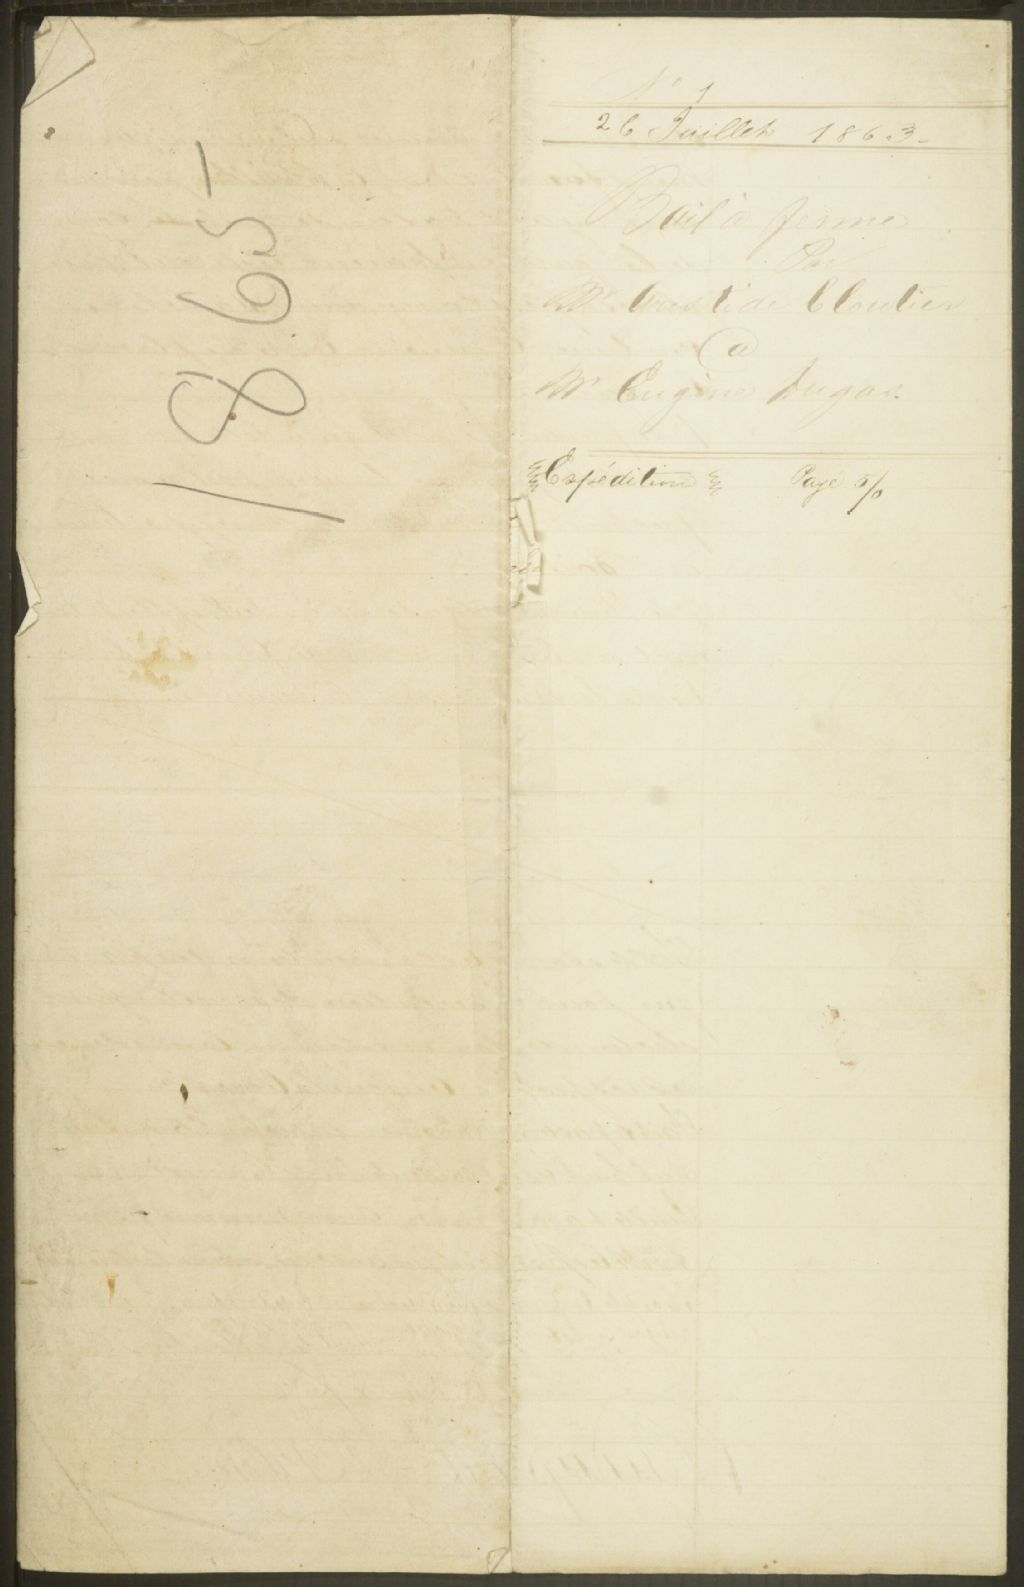 1863 -
N° 1
26 Juillet 1863 -
Bail à ferme
Par
Mr Aristide Cloutier
à
Mr Eugène Dugas.
Expédition Payé 5/0